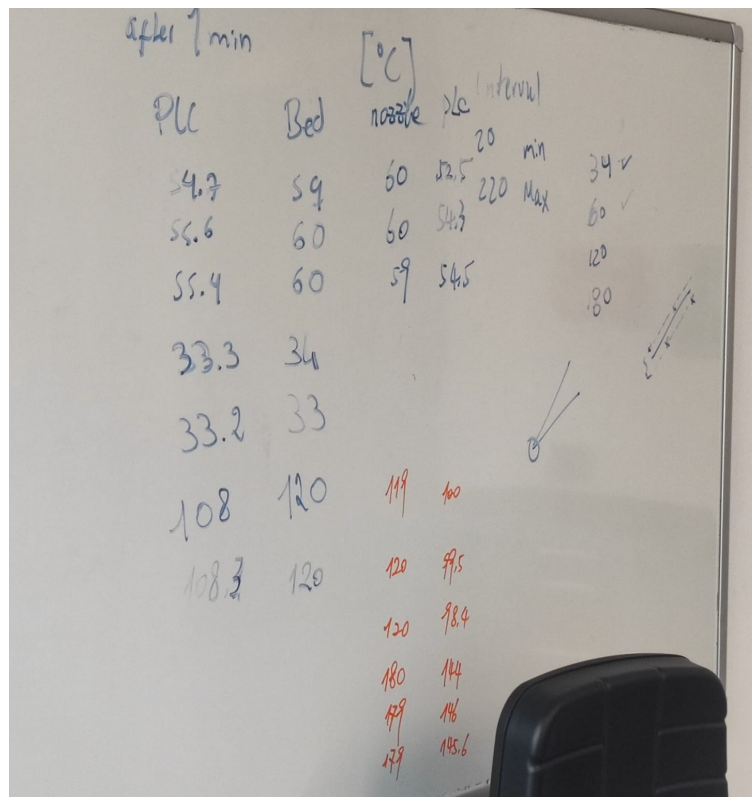 after 1 min
[°C]
PLC Bed nozzle PLC Interval
20 min
54.7 59 60 52.5 220 Max 34 ✓
55.6 60 60 54.3 60 ✓
55.4 60 59 54.5 120
180
33.3 34
33.2 33
108 120 119 100
108.3 120 120 99.5
120 98.4
180 144
179 146
179 145.6